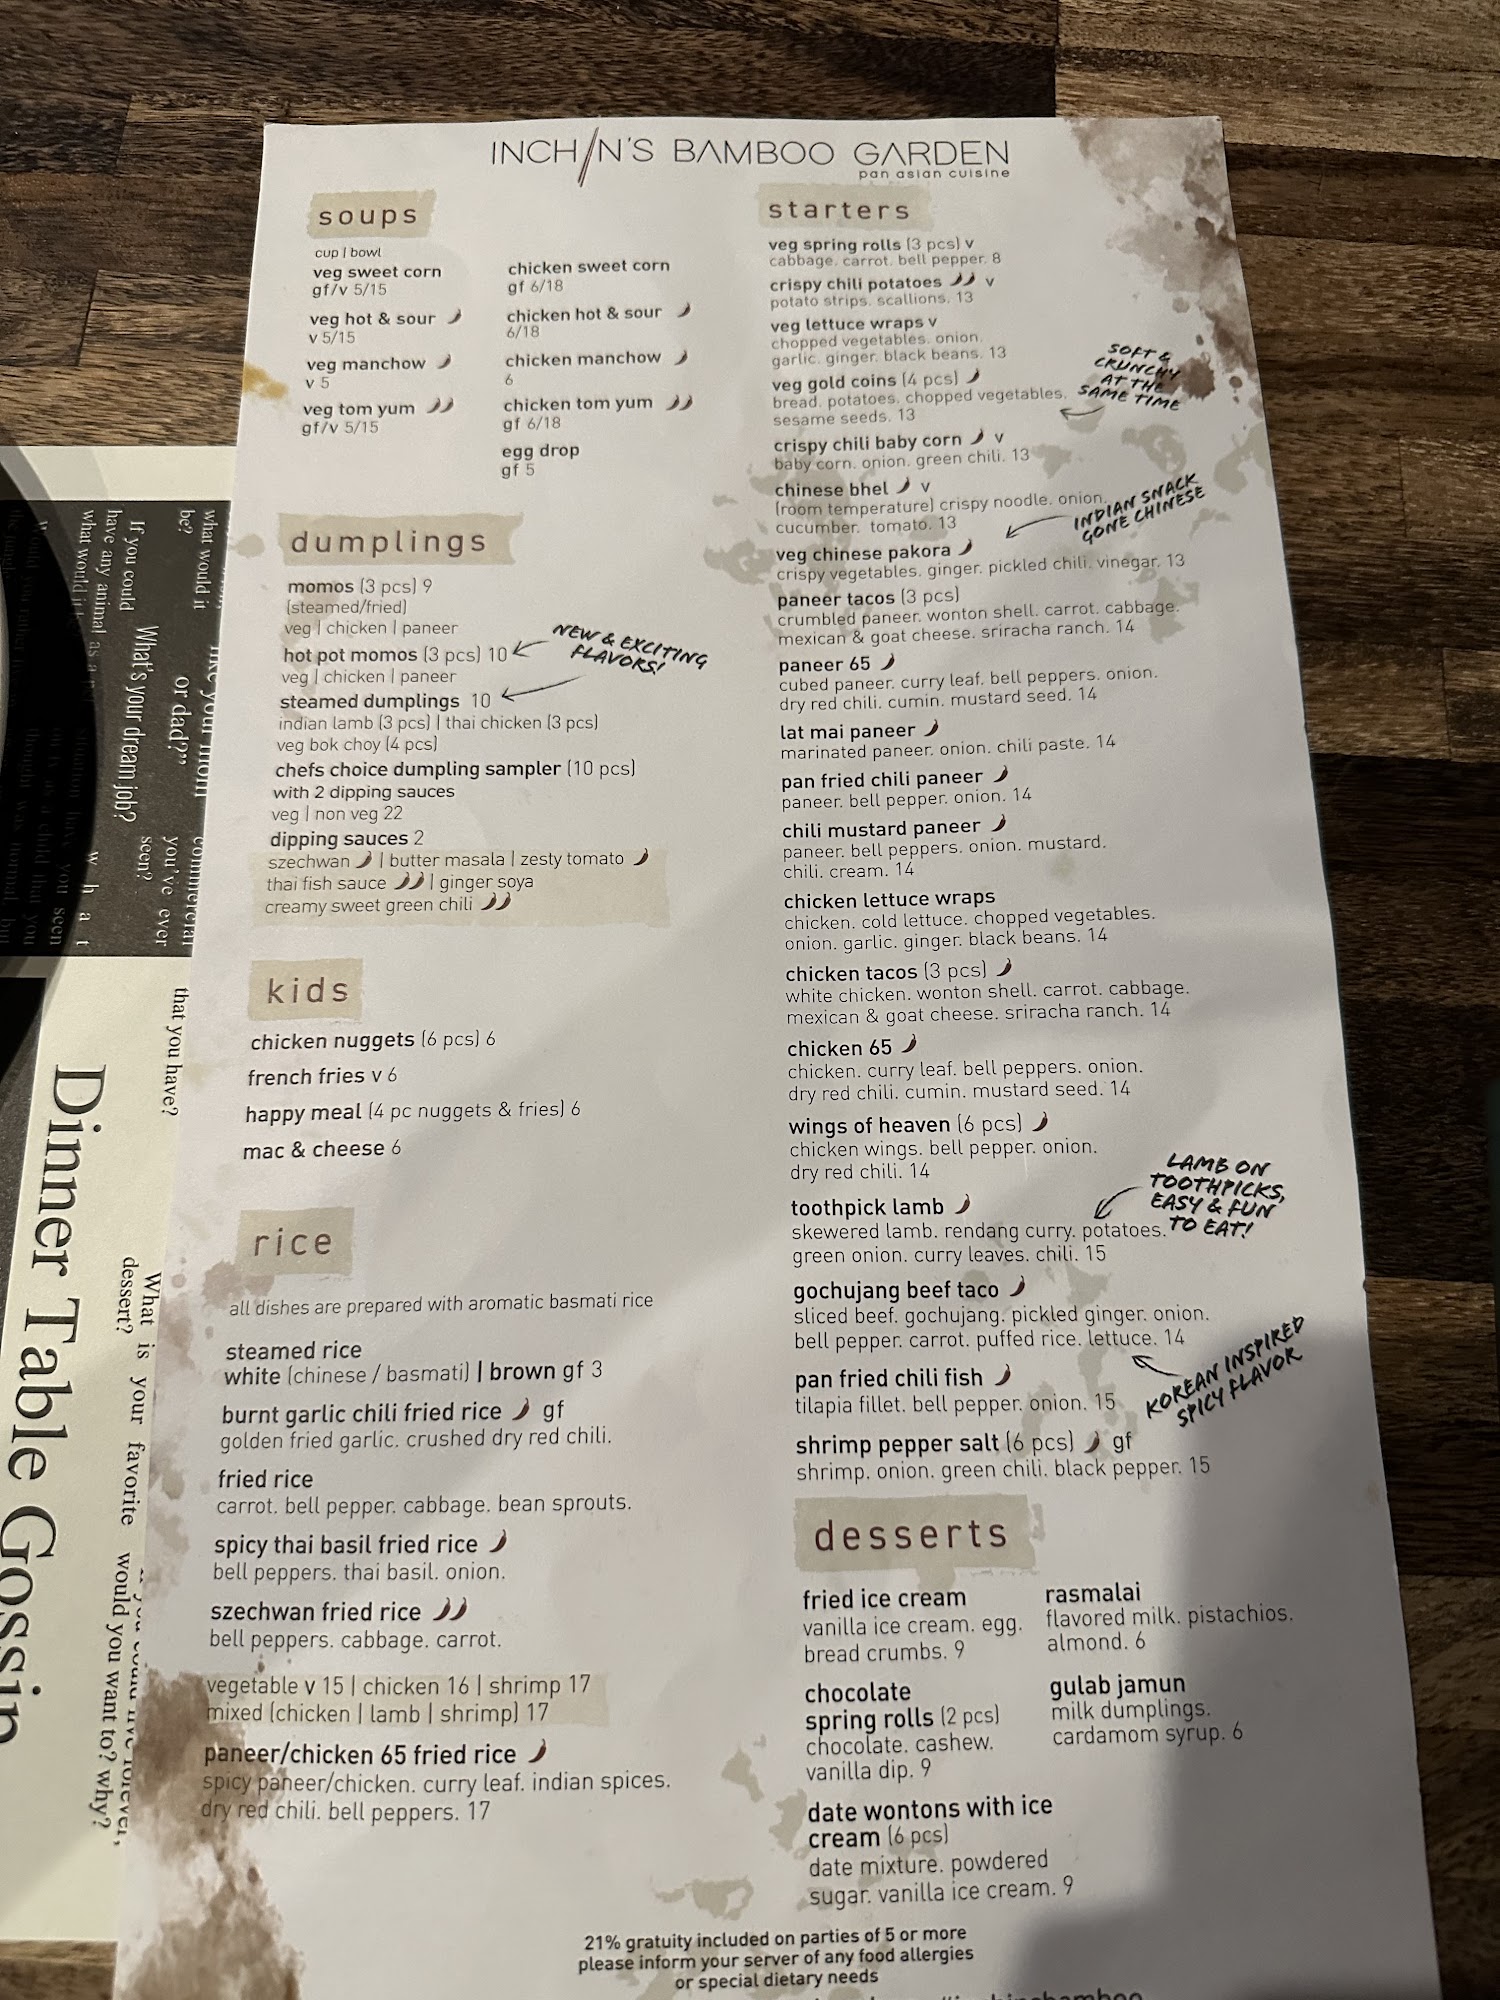 INCHIN'S BAMBOO GARDEN
pan asian cuisine
soups
cup | bowl
veg sweet corn
gf/v 5/15
veg hot & sour
v 5/15
veg manchow
v 5
veg tom yum
gf/v 5/15
chicken sweet corn
gf 6/18
chicken hot & sour
6/18
chicken manchow
6
chicken tom yum
gf 6/18
egg drop
gf 5
dumplings
momos (3 pcs) 9
(steamed/fried)
veg | chicken | paneer
hot pot momos (3 pcs) 10
veg | chicken | paneer
NEW & EXCITING
FLAVORS!
steamed dumplings 10
indian lamb (3 pcs) | thai chicken (3 pcs)
veg bok choy (4 pcs)
chefs choice dumpling sampler (10 pcs)
with 2 dipping sauces
veg | non veg 22
dipping sauces 2
szechwan | butter masala | zesty tomato
thai fish sauce | ginger soya
creamy sweet green chili
kids
chicken nuggets (6 pcs) 6
french fries v 6
happy meal (4 pc nuggets & fries) 6
mac & cheese 6
rice
all dishes are prepared with aromatic basmati rice
steamed rice
white (chinese / basmati) | brown gf 3
burnt garlic chili fried rice gf
golden fried garlic. crushed dry red chili.
fried rice
carrot. bell pepper. cabbage. bean sprouts.
spicy thai basil fried rice
bell peppers. thai basil. onion.
szechwan fried rice
bell peppers. cabbage. carrot.
vegetable v 15 | chicken 16 | shrimp 17
mixed (chicken | lamb | shrimp) 17
paneer/chicken 65 fried rice
spicy paneer/chicken. curry leaf. indian spices.
dry red chili. bell peppers. 17
starters
veg spring rolls (3 pcs) v
cabbage. carrot. bell pepper. 8
crispy chili potatoes v
potato strips. scallions. 13
veg lettuce wraps v
chopped vegetables. onion.
garlic. ginger. black beans. 13
veg gold coins (4 pcs)
bread. potatoes. chopped vegetables.
sesame seeds. 13
SOFT &
CRUNCHY
AT THE
SAME TIME
crispy chili baby corn v
baby corn. onion. green chili. 13
chinese bhel v
(room temperature) crispy noodle. onion.
cucumber. tomato. 13
INDIAN SNACK
GONE CHINESE
veg chinese pakora
crispy vegetables. ginger. pickled chili. vinegar. 13
paneer tacos (3 pcs)
crumbled paneer. wonton shell. carrot. cabbage.
mexican & goat cheese. sriracha ranch. 14
paneer 65
cubed paneer. curry leaf. bell peppers. onion.
dry red chili. cumin. mustard seed. 14
lat mai paneer
marinated paneer. onion. chili paste. 14
pan fried chili paneer
paneer. bell pepper. onion. 14
chili mustard paneer
paneer. bell peppers. onion. mustard.
chili. cream. 14
chicken lettuce wraps
chicken. cold lettuce. chopped vegetables.
onion. garlic. ginger. black beans. 14
chicken tacos (3 pcs)
white chicken. wonton shell. carrot. cabbage.
mexican & goat cheese. sriracha ranch. 14
chicken 65
chicken. curry leaf. bell peppers. onion.
dry red chili. cumin. mustard seed. 14
wings of heaven (6 pcs)
chicken wings. bell pepper. onion.
dry red chili. 14
toothpick lamb
skewered lamb. rendang curry. potatoes.
green onion. curry leaves. chili. 15
LAMB ON
TOOTHPICKS,
EASY & FUN
TO EAT!
gochujang beef taco
sliced beef. gochujang. pickled ginger. onion.
bell pepper. carrot. puffed rice. lettuce. 14
KOREAN INSPIRED
SPICY FLAVOR
pan fried chili fish
tilapia fillet. bell pepper. onion. 15
shrimp pepper salt (6 pcs) gf
shrimp. onion. green chili. black pepper. 15
desserts
fried ice cream
vanilla ice cream. egg.
bread crumbs. 9
chocolate
spring rolls (2 pcs)
chocolate. cashew.
vanilla dip. 9
date wontons with ice
cream (6 pcs)
date mixture. powdered
sugar. vanilla ice cream. 9
rasmalai
flavored milk. pistachios.
almond. 6
gulab jamun
milk dumplings.
cardamom syrup. 6
21% gratuity included on parties of 5 or more
please inform your server of any food allergies
or special dietary needs
Dinner Table Gossip
What is your favorite
dessert?
would you want to? why?
that you have?
you've ever
seen?
What's your dream job?
or dad?"
If you could
have any animal as a
what would it
be?